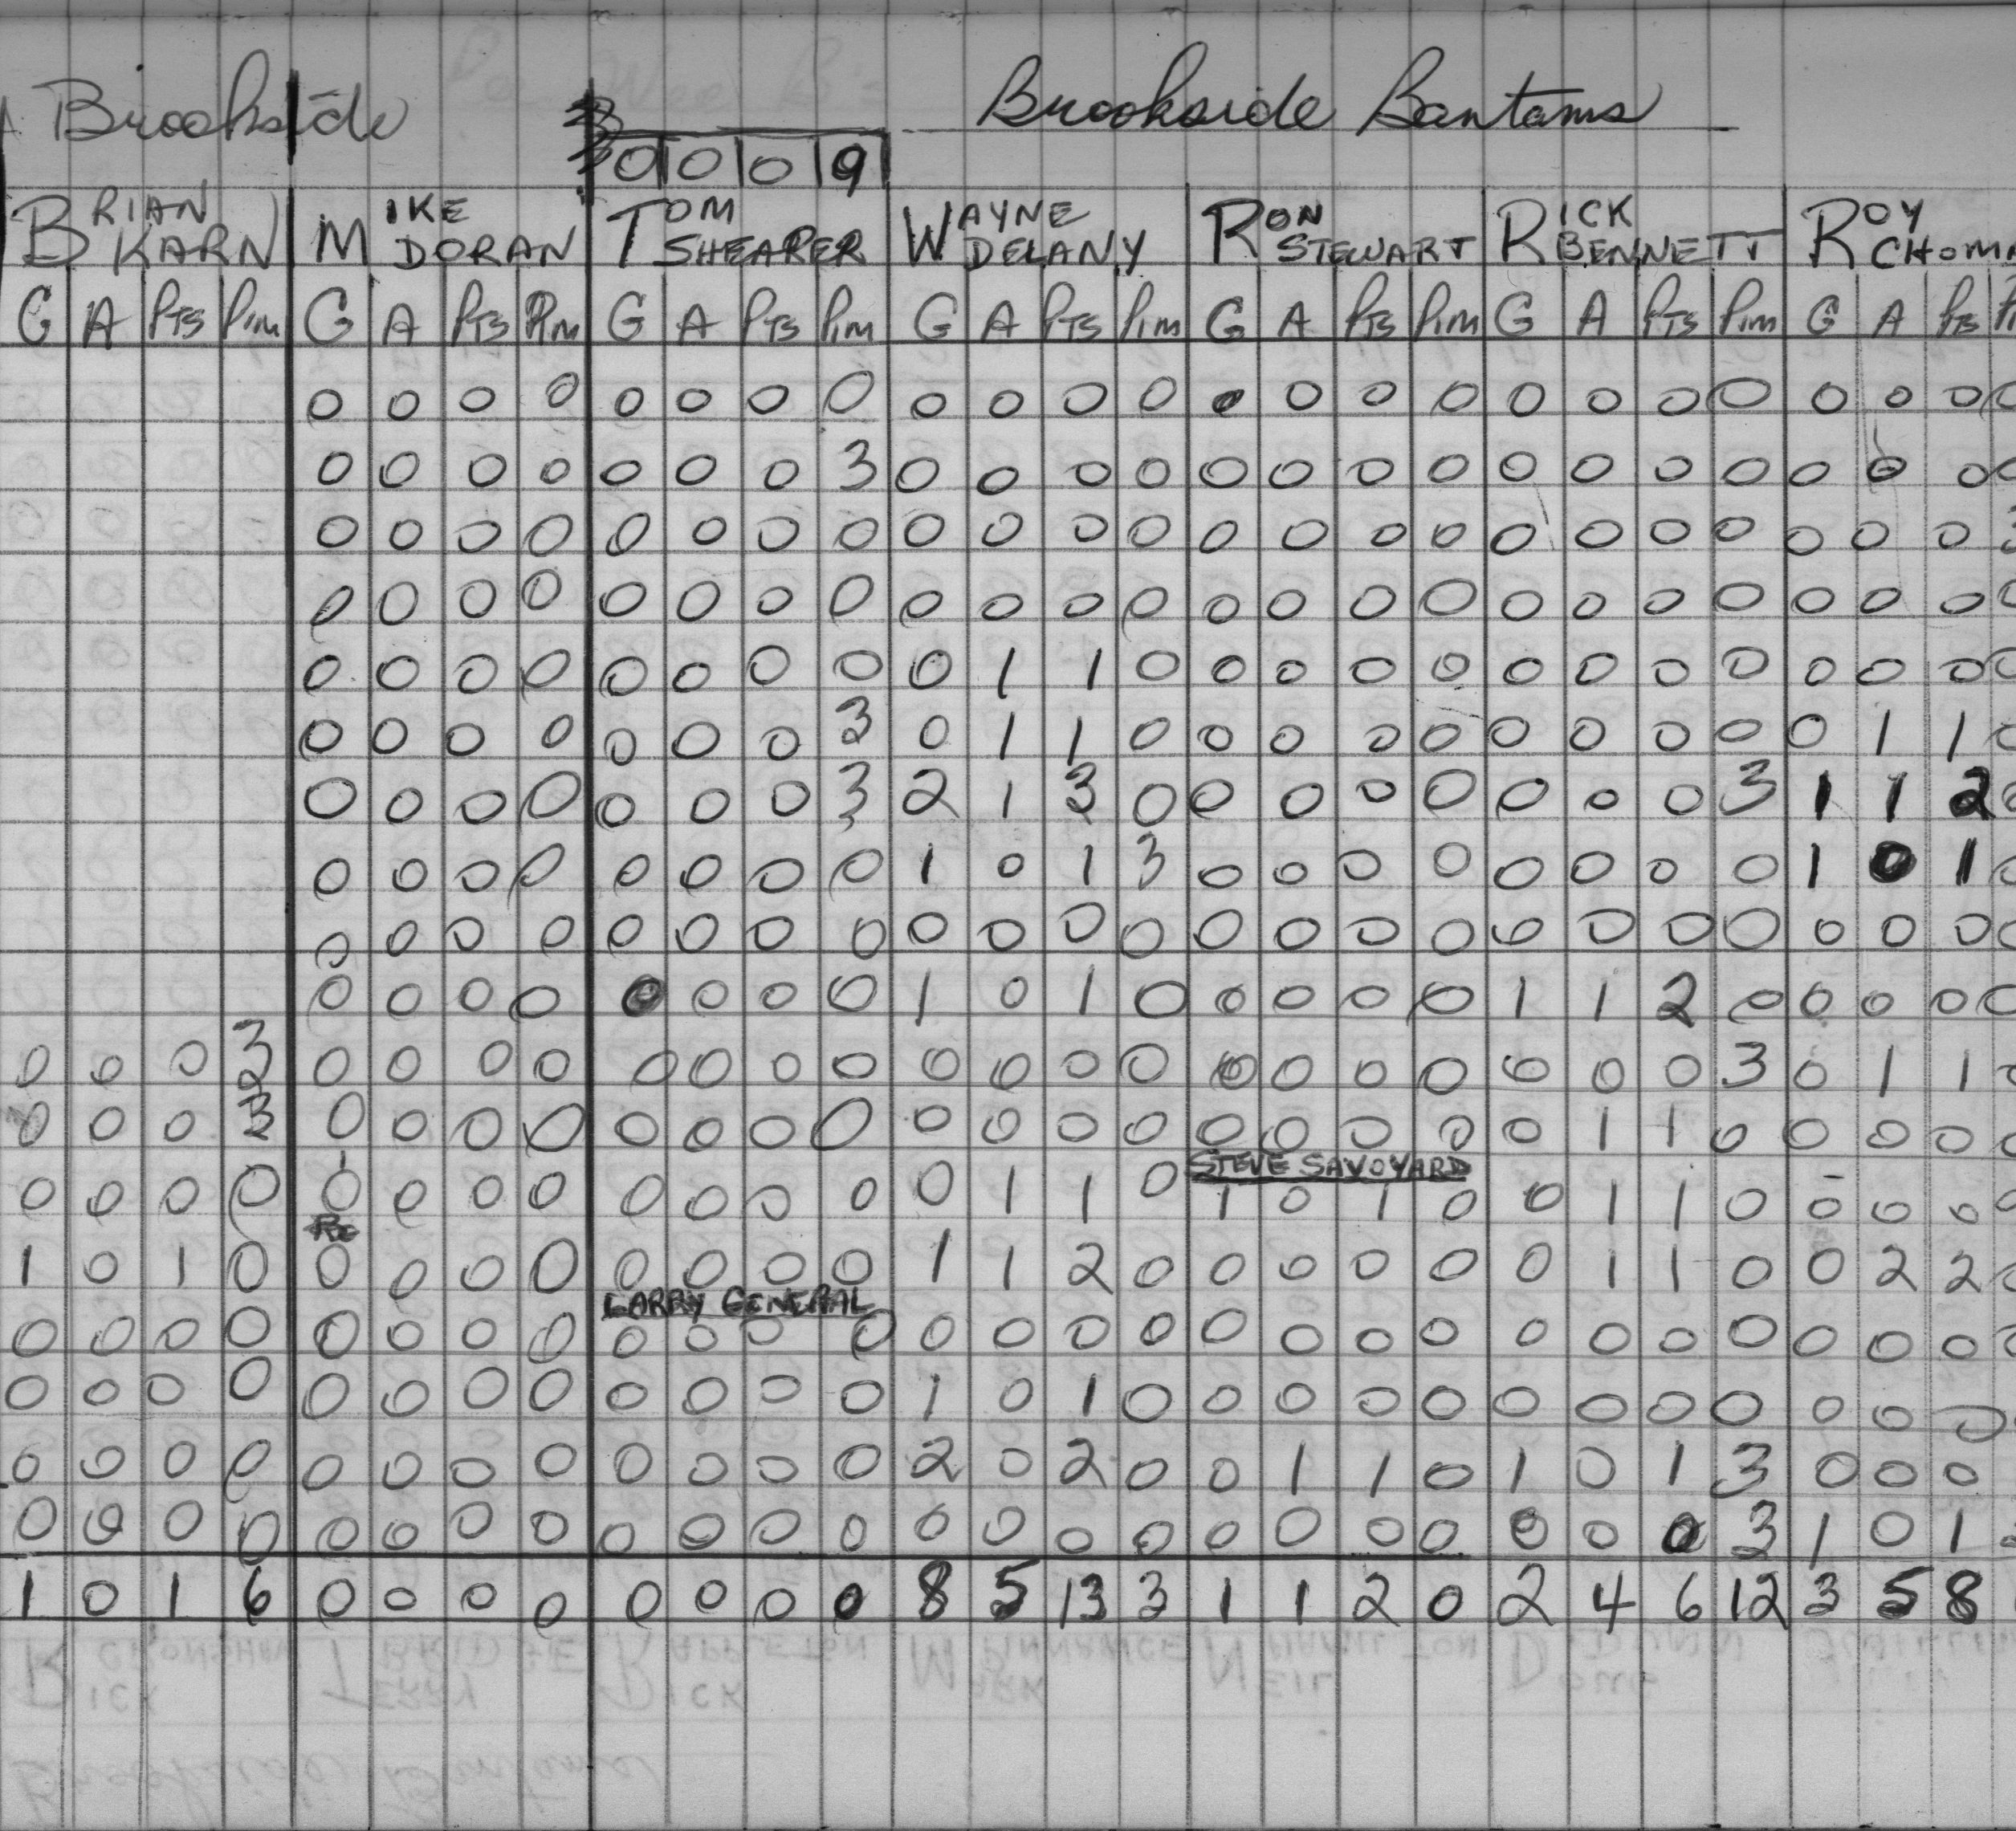 Brookside Brookside Bantams
0 0 0 9
BRIAN KARN MIKE DORAN TOM SHEARER WAYNE DELANY RON STEWART RICK BENNETT ROY CHOMA
G A PTS PIM G A PTS PIM G A PTS PIM G A PTS PIM G A PTS PIM G A PTS PIM G A PTS
0 0 0 0 0 0 0 0 0 0 0 0 0 0 0 0 0 0 0 0 0 0 0 0
0 0 0 0 0 0 0 3 0 0 0 0 0 0 0 0 0 0 0 0 0 0 0 0
0 0 0 0 0 0 0 0 0 0 0 0 0 0 0 0 0 0 0 0 0 0 0 3
0 0 0 0 0 0 0 0 0 0 0 0 0 0 0 0 0 0 0 0 0 0 0 0
0 0 0 0 0 0 0 0 0 1 1 0 0 0 0 0 0 0 0 0 0 0 0 0
0 0 0 0 0 0 0 3 0 1 1 0 0 0 0 0 0 0 0 0 0 1 1 0
0 0 0 0 0 0 0 3 2 1 3 0 0 0 0 0 0 0 0 3 1 1 2 0
0 0 0 0 0 0 0 0 1 0 1 3 0 0 0 0 0 0 0 0 1 0 1 0
0 0 0 0 0 0 0 0 0 0 0 0 0 0 0 0 0 0 0 0 0 0 0 0
0 0 0 0 0 0 0 0 1 0 1 0 0 0 0 0 1 1 2 0 0 0 0 0
0 0 0 3 0 0 0 0 0 0 0 0 0 0 0 0 0 0 0 0 0 0 0 3 0 1 1 0
0 0 0 3 0 0 0 0 0 0 0 0 0 0 0 0 0 0 0 0 0 1 1 0 0 0 0 0
STEVE SAVOYARD
0 0 0 0 0 0 0 0 0 0 0 0 0 1 1 0 1 0 1 0 0 1 1 0 0 0 0 0
1 0 1 0 0 0 0 0 0 0 0 0 1 1 2 0 0 0 0 0 0 1 1 0 0 2 2 0
LARRY GENERAL
0 0 0 0 0 0 0 0 0 0 0 0 0 0 0 0 0 0 0 0 0 0 0 0 0 0 0 0
0 0 0 0 0 0 0 0 0 0 0 0 1 0 1 0 0 0 0 0 0 0 0 0 0 0 0
0 0 0 0 0 0 0 0 0 0 0 0 2 0 2 0 0 1 1 0 1 0 1 3 0 0 0
0 0 0 0 0 0 0 0 0 0 0 0 0 0 0 0 0 0 0 0 0 0 0 3 1 0 1 3
1 0 1 6 0 0 0 0 0 0 0 0 8 5 13 3 1 1 2 0 2 4 6 12 3 5 8